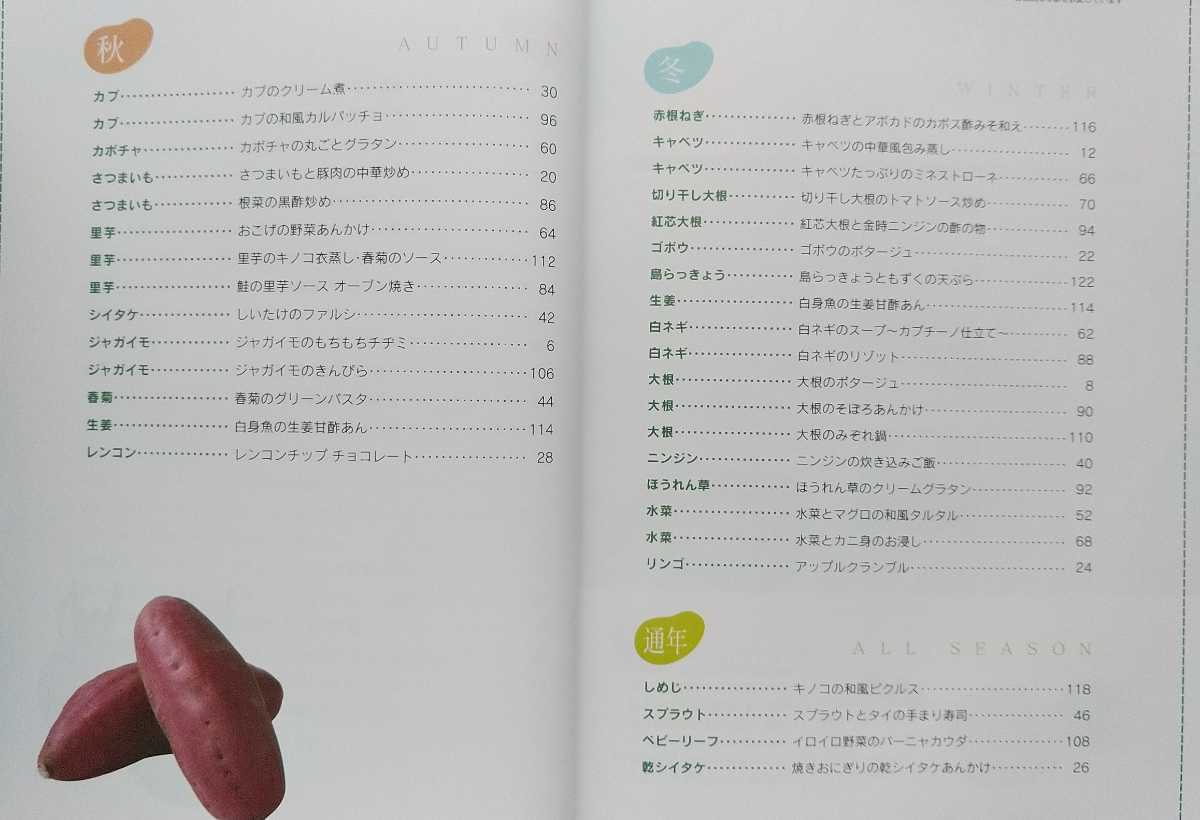 秋
AUTUMN
カブ………………カブのクリーム煮………………………30
カブ………………カブの和風カルパッチョ………………96
カボチャ…………カボチャの丸ごとグラタン……………60
さつまいも………さつまいもと豚肉の中華炒め…………20
さつまいも………根菜の黒酢炒め…………………………86
里芋………………おこげの野菜あんかけ…………………64
里芋………………里芋のキノコ衣蒸し・春菊のソース…………112
里芋………………鮭の里芋ソース オーブン焼き…………84
シイタケ…………しいたけのファルシ……………………42
ジャガイモ………ジャガイモのもちもちチヂミ…………6
ジャガイモ………ジャガイモのきんぴら…………………106
春菊………………春菊のグリーンパスタ…………………44
生姜………………白身魚の生姜甘酢あん…………………114
レンコン…………レンコンチップ チョコレート…………28
冬
WINTER
赤根ねぎ…………赤根ねぎとアボカドのカボス酢みそ和え……116
キャベツ…………キャベツの中華風包み蒸し……………12
キャベツ…………キャベツたっぷりのミネストローネ………66
切り干し大根……切り干し大根のトマトソース炒め………70
紅芯大根…………紅芯大根と金時ニンジンの酢の物………94
ゴボウ……………ゴボウのポタージュ……………………22
島らっきょう……島らっきょうともずくの天ぷら…………122
生姜………………白身魚の生姜甘酢あん…………………114
白ネギ……………白ネギのスープ～カプチーノ仕立て～……62
白ネギ……………白ネギのリゾット………………………88
大根………………大根のポタージュ………………………8
大根………………大根のそぼろあんかけ…………………90
大根………………大根のみぞれ鍋…………………………110
ニンジン…………ニンジンの炊き込みご飯………………40
ほうれん草………ほうれん草のクリームグラタン…………92
水菜………………水菜とマグロの和風タルタル…………52
水菜………………水菜とカニ身のお浸し…………………68
リンゴ……………アップルクランブル……………………24
通年
ALL SEASON
しめじ……………キノコの和風ピクルス…………………118
スプラウト………スプラウトとタイの手まり寿司…………46
ベビーリーフ……イロイロ野菜のバーニャカウダ…………108
乾シイタケ………焼きおにぎりの乾シイタケあんかけ………26